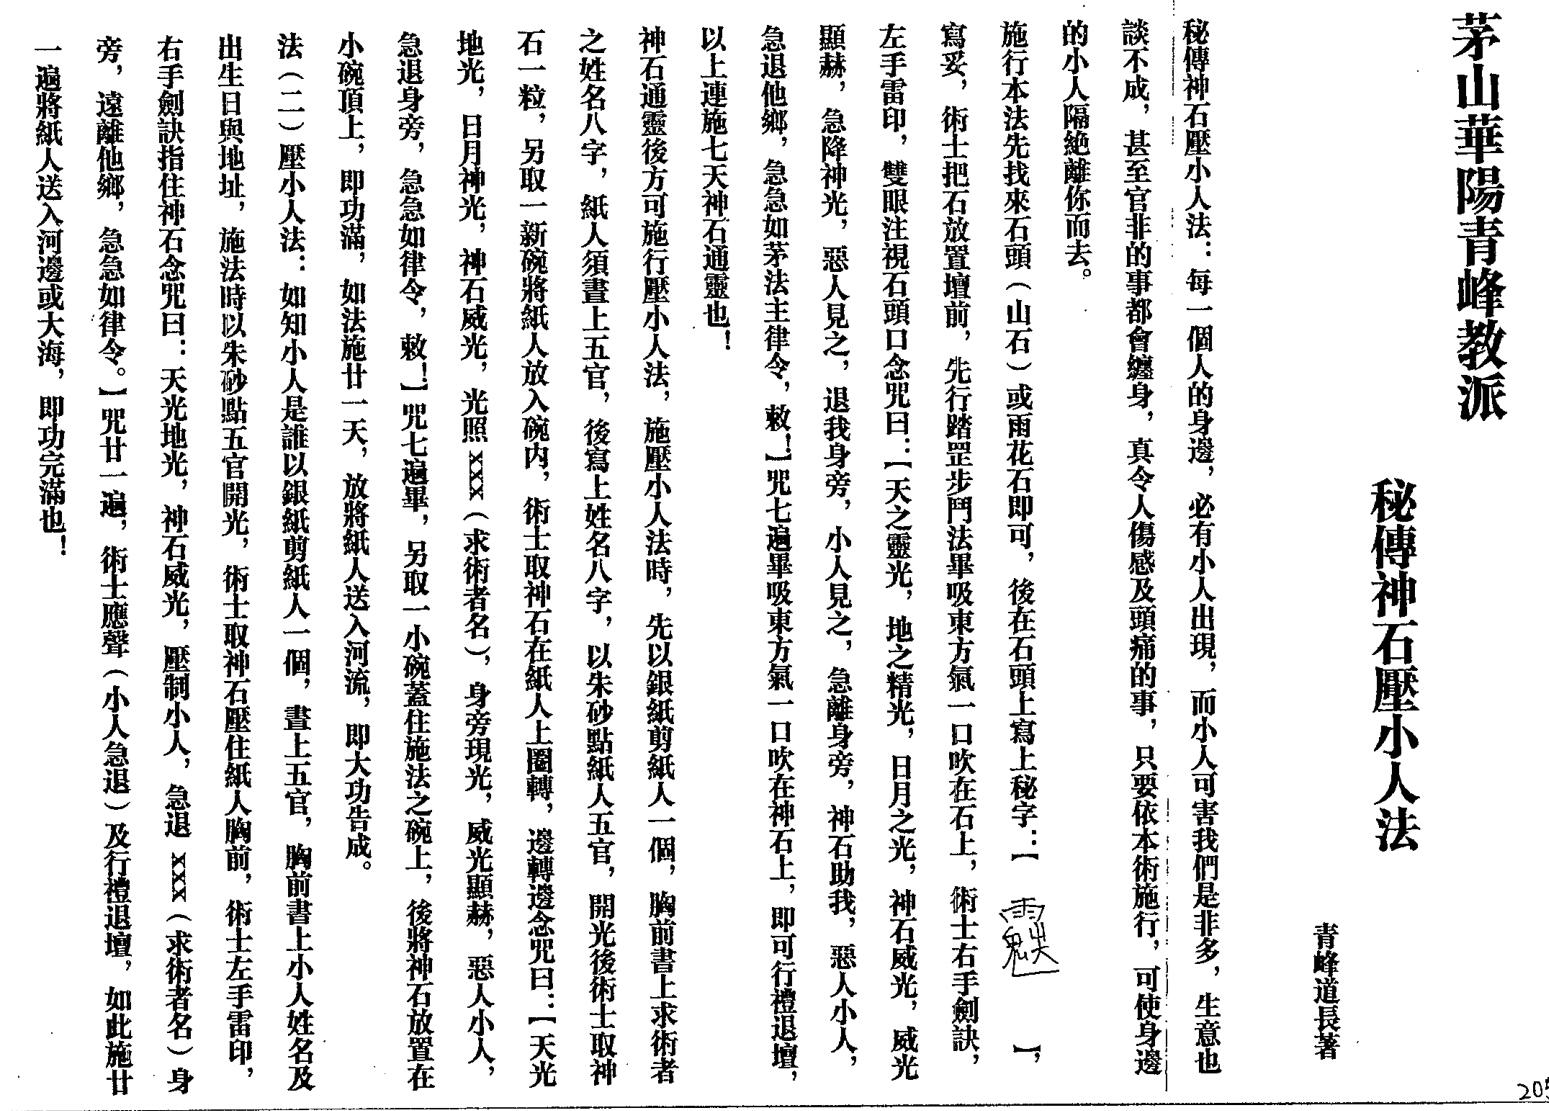 茅山華陽青峰教派
秘傳神石壓小人法
青峰道長著
秘傳神石壓小人法：每一個人的身邊，必有小人出現，而小人可害我們是非多，生意也
談不成，甚至官非的事都會纏身，真令人傷感及頭痛的事，只要依本術施行，可使身邊
的小人隔絶離你而去。
施行本法先找來石頭（山石）或雨花石即可，後在石頭上寫上秘字：【　】，
寫妥，術士把石放置壇前，先行踏罡步鬥法畢吸東方氣一口吹在石上，術士右手劍訣，
左手雷印，雙眼注視石頭口念咒曰：【天之靈光，地之精光，日月之光，神石威光，威光
顯赫，急降神光，惡人見之，退我身旁，小人見之，急離身旁，神石助我，惡人小人，
急退他鄉，急急如茅法主律令，敕！】咒七遍畢吸東方氣一口吹在神石上，即可行禮退壇，
以上連施七天神石通靈也！
神石通靈後方可施行壓小人法，施壓小人法時，先以銀紙剪紙人一個，胸前書上求術者
之姓名八字，紙人須畫上五官，後寫上姓名八字，以朱砂點紙人五官，開光後術士取神
石一粒，另取一新碗將紙人放入碗內，術士取神石在紙人上圈轉，邊轉邊念咒曰：【天光
地光，日月神光，神石威光，光照×××（求術者名），身旁現光，威光顯赫，惡人小人，
急退身旁，急急如律令，敕！】咒七遍畢，另取一小碗蓋住施法之碗上，後將神石放置在
小碗頂上，即功滿，如法施廿一天，放將紙人送入河流，即大功告成。
法（二）壓小人法：如知小人是誰以銀紙剪紙人一個，畫上五官，胸前書上小人姓名及
出生日與地址，施法時以朱砂點五官開光，術士取神石壓住紙人胸前，術士左手雷印，
右手劍訣指住神石念咒曰：天光地光，神石威光，壓制小人，急退×××（求術者名）身
旁，遠離他鄉，急急如律令。】咒廿一遍，術士應聲（小人急退）及行禮退壇，如此施廿
一遍將紙人送入河邊或大海，即功完滿也！
205